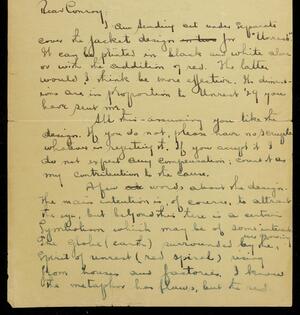 Dear Conroy,
I am sending out under separate
cover the jacket design for "Unrest"
It can be printed in black and white alone
or with the addition of red. The latter
would I think be more effective. The dimen-
sions are in proportion to Unrest '29 you
have sent me.
All this assuming you like the
design. If you do not, please have no scruples
whatever in rejecting it. If you accept it I
do not expect any compensation; count it as
my contribution to the cause.
A few words about the design.
The main intention is, of course, to attract
the eye, but beyond this there is a certain
symbolism which may be of some interest
The globe (earth) surrounded by the
spirit of unrest (red spiral) rising
from houses and factories. I know
the metaphor has flaws, but the red